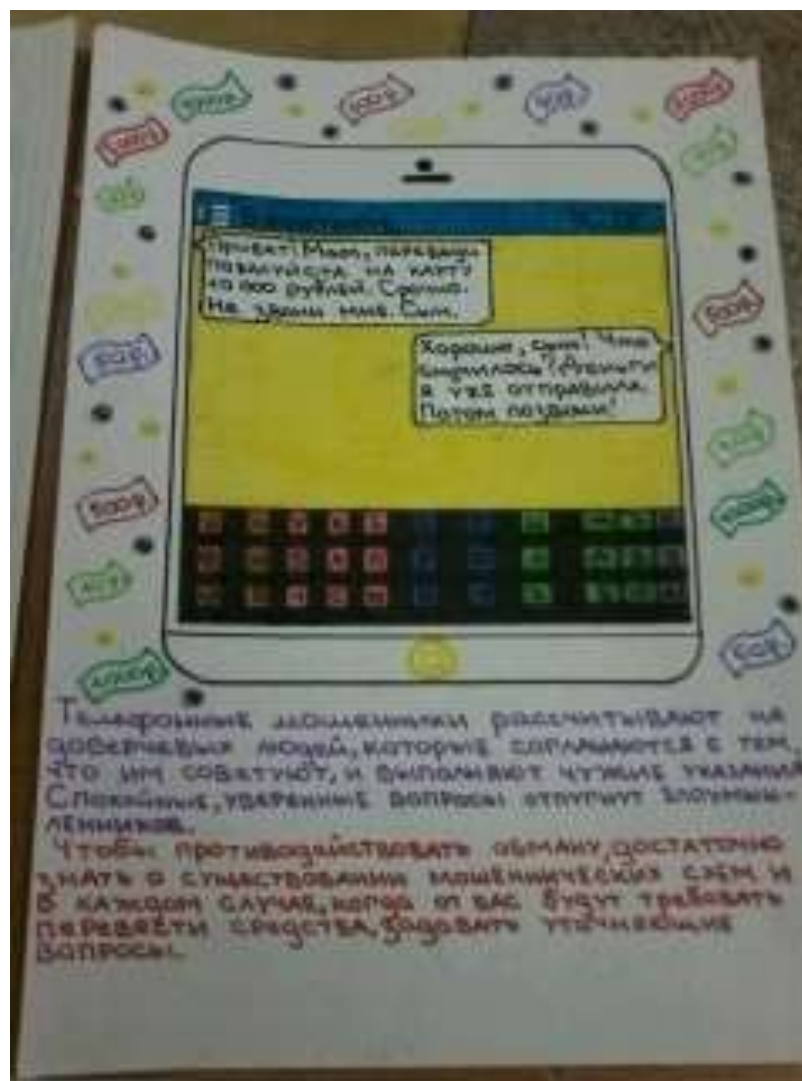 1000р
100р
50р
500р
5000р
50р
500р
Привет! Мам, переведи
пожалуйста на карту
10 000 рублей. Срочно.
Не звони мне. Сын.
Хорошо, сын! Что
случилось? Деньги
я уже отправила.
Потом позвони!
500р
1000р
1000р
50р
Телефонные мошенники рассчитывают на
доверчевых людей, которые соглашаются с тем,
что им советуют, и выполняют чужие указания.
Спокойные, уверенные вопросы отпугнут злоумыш-
ленников.
Чтобы противодействовать обману, достаточно
знать о существовании мошеннических схем и
в каждом случае, когда от вас будут требовать
перевести средства, задавать уточняющие
вопросы.